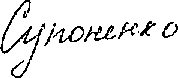 Супоненко